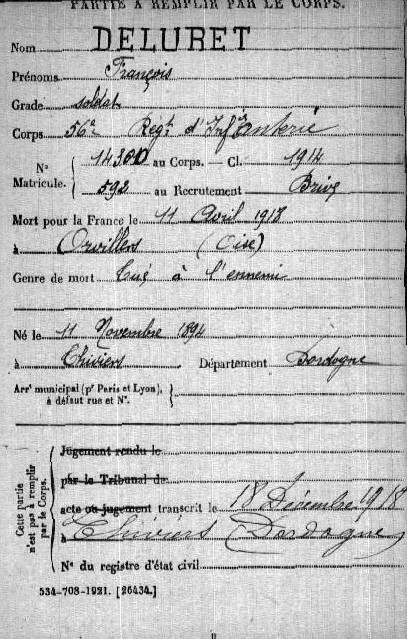 PARTIE À REMPLIR PAR LE CORPS.
Nom DELURET
Prénoms François
Grade soldat
Corps 56e Régt d'Infanterie
N° Matricule. { 14300 au Corps. — Cl. 1914
592 au Recrutement Brive
Mort pour la France le 11 Avril 1918
à Orvillers (Oise)
Genre de mort tué à l'ennemi
Né le 11 Novembre 1894
à Thiviers Département Dordogne
Arrt municipal (pr Paris et Lyon), à défaut rue et N°. }
Cette partie n'est pas à remplir par le Corps.
Jugement rendu le
par le Tribunal de
acte ou jugement transcrit le 18 Décembre 1918
à Thiviers (Dordogne)
N° du registre d'état civil
534-708-1921. [26434.]